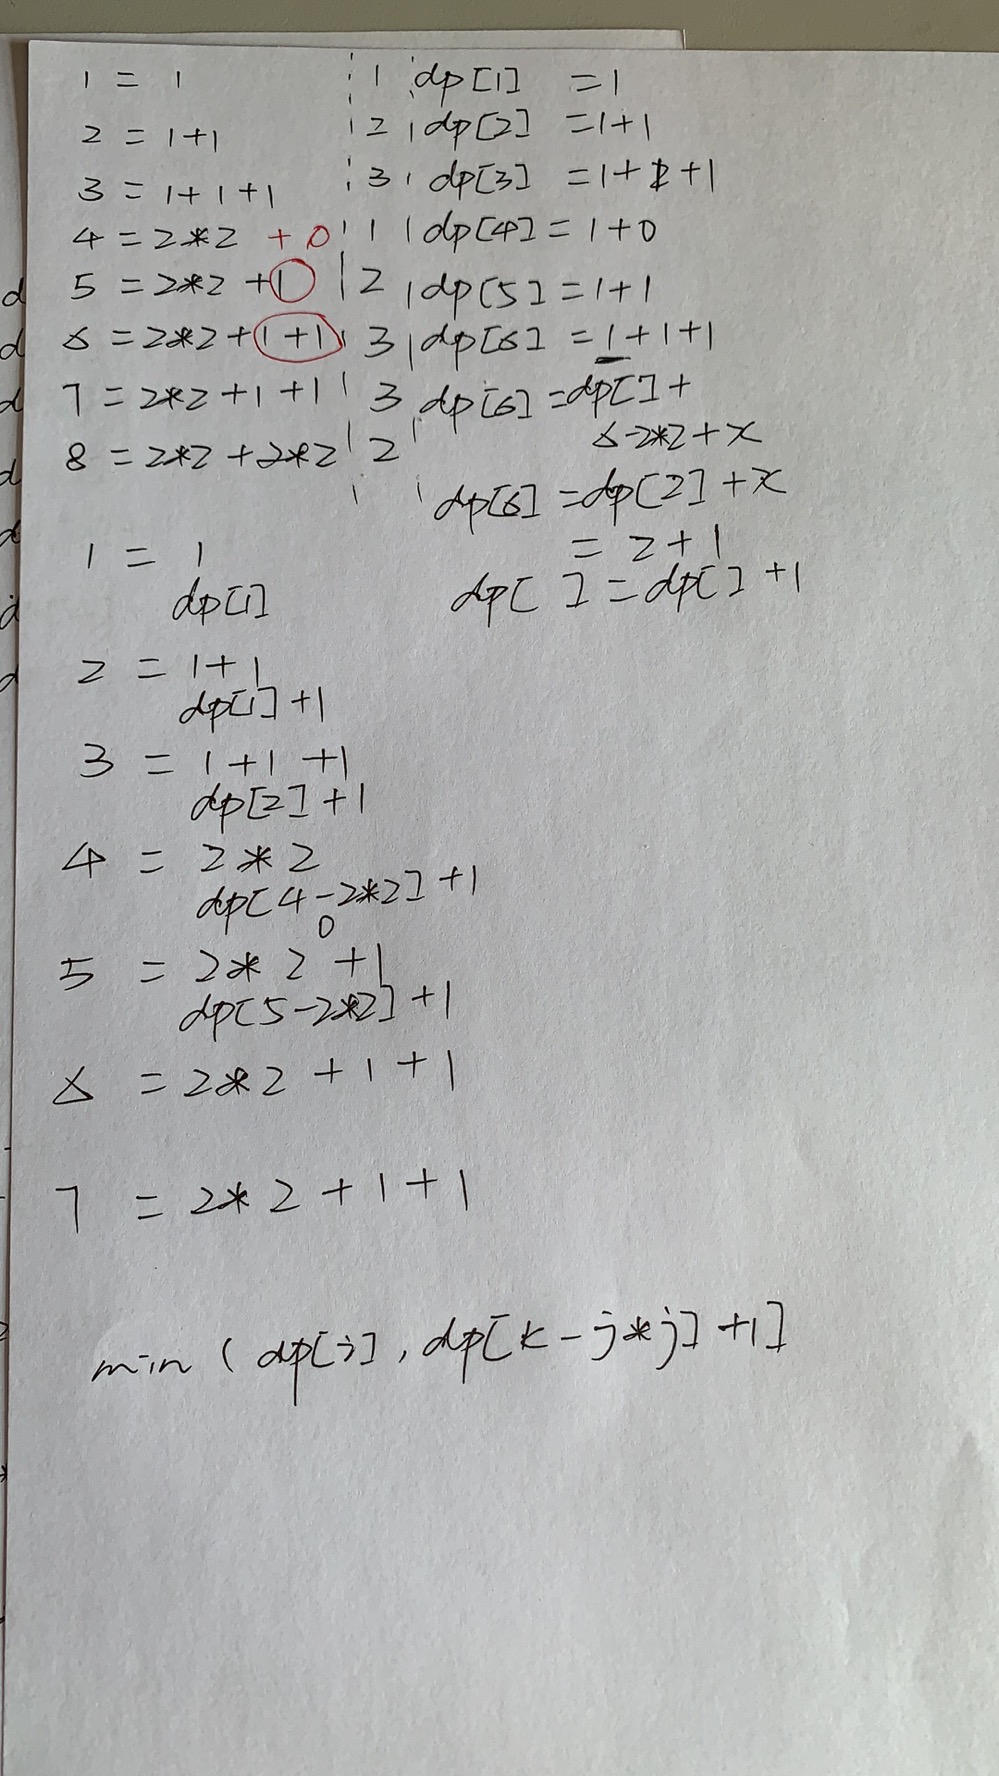 1 = 1 1 dp[1] = 1
2 = 1+1 2 dp[2] = 1+1
3 = 1+1+1 3 dp[3] = 1+1+1
4 = 2*2 + 0 1 dp[4] = 1+0
5 = 2*2 + 1 2 dp[5] = 1+1
6 = 2*2 + 1+1 3 dp[6] = 1+1+1
7 = 2*2 + 1 + 1 3 dp[6] = dp[ ] +
6-2*2 + x
8 = 2*2 + 2*2 2
dp[6] = dp[2] + x
= 2 + 1
dp[ ] = dp[ ] + 1
1 = 1
dp[1]
2 = 1+1
dp[1] + 1
3 = 1+1 +1
dp[2] + 1
4 = 2*2
dp[4-2*2] + 1
0
5 = 2*2 + 1
dp[5-2*2] + 1
6 = 2*2 + 1 + 1
7 = 2*2 + 1 + 1
min ( dp[i], dp[k - j*j] + 1]